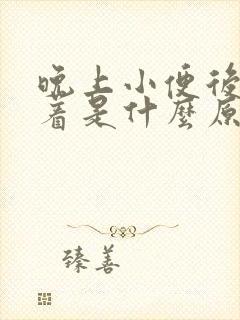 晚上小便後
着是什麼原
臻善